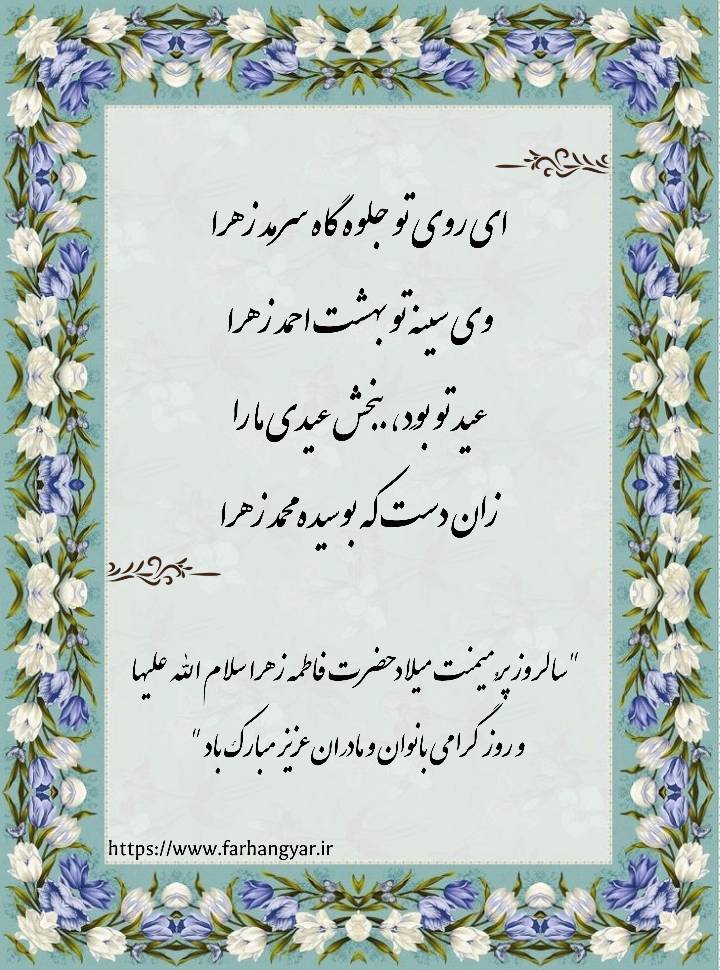 ای روی تو جلوه گاه سرمد زهرا
وی سینه تو بهشت احمد زهرا
عید تو بود، ببخش عیدی ما را
زان دست که بوسیده محمد زهرا
"سالروز پر میمنت میلاد حضرت فاطمه زهرا سلام الله علیها
و روز گرامی بانوان و مادران عزیز مبارک باد"
https://www.farhangyar.ir